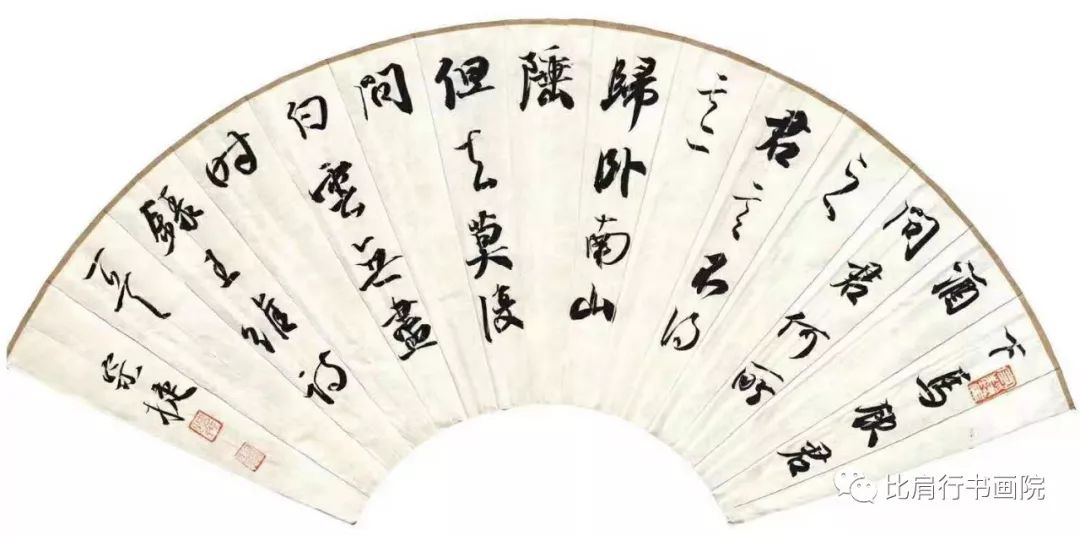 下馬飲君
酒
問君何所
之
君言不得
意
歸卧南山
陲
但去莫復
問
白雲無盡
時
錄王維詩
比肩行书画院